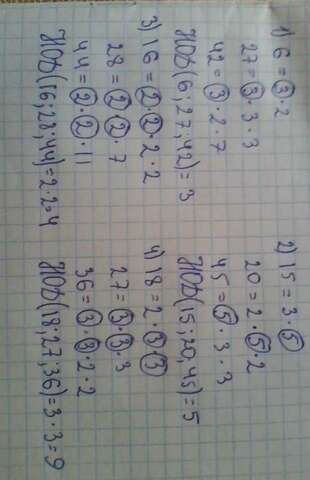 1) 6 = 3 · 2
27 = 3 · 3 · 3
42 = 3 · 2 · 7
НОД (6; 27; 42) = 3
2) 15 = 3 · 5
20 = 2 · 5 · 2
45 = 5 · 3 · 3
НОД (15; 20; 45) = 5
3) 16 = 2 · 2 · 2 · 2
28 = 2 · 2 · 7
44 = 2 · 2 · 11
НОД (16; 28; 44) = 2 · 2 = 4
4) 18 = 2 · 3 · 3
27 = 3 · 3 · 3
36 = 3 · 3 · 2 · 2
НОД (18; 27; 36) = 3 · 3 = 9